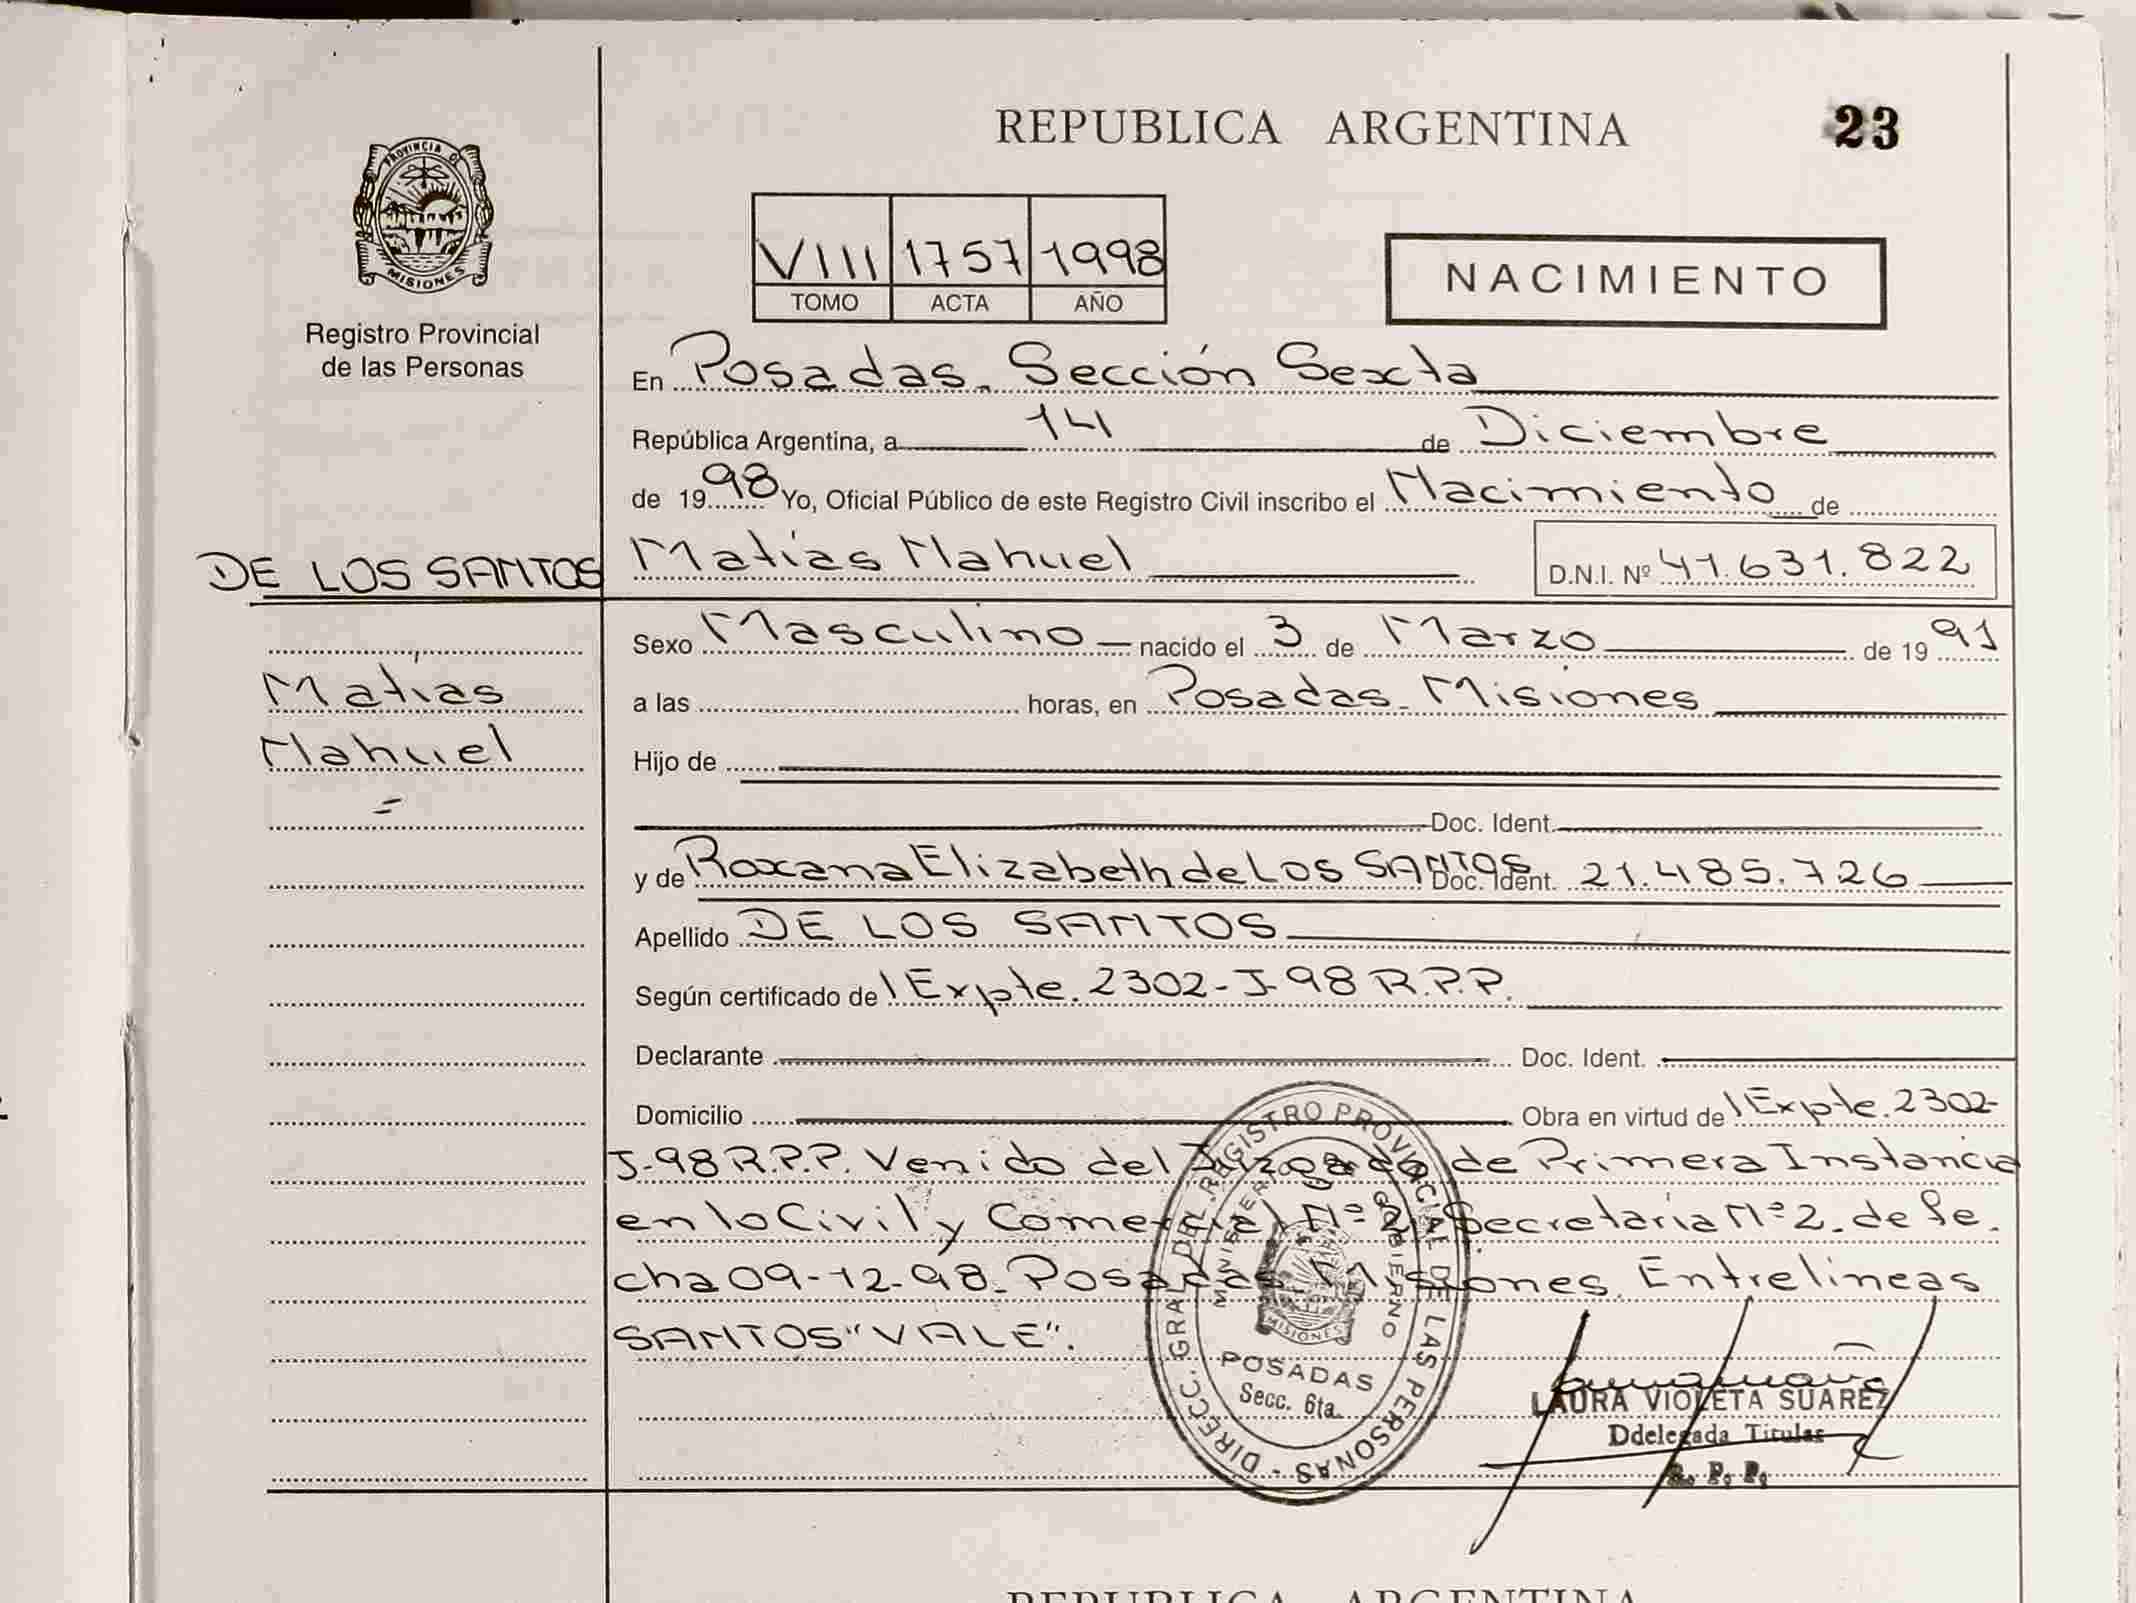 REPUBLICA ARGENTINA
23
PROVINCIA DE
MISIONES
Registro Provincial
de las Personas
VIII 1757 1998
TOMO ACTA AÑO
NACIMIENTO
En Posadas. Sección Sexta
República Argentina, a 14 de Diciembre
de 1998 Yo, Oficial Público de este Registro Civil inscribo el Nacimiento de
DE LOS SANTOS
Matías Nahuel
D.N.I. Nº 41.631.822
Sexo Masculino nacido el 3 de Marzo de 1991
Matías
a las horas, en Posadas. Misiones
Nahuel
Hijo de
Doc. Ident.
y de Roxana Elizabeth de Los SANTOS Doc. Ident. 21.485.726
Apellido DE LOS SANTOS
Según certificado de l Expte. 2302-J-98 R.P.P.
Declarante Doc. Ident.
Domicilio Obra en virtud de l Expte. 2302-
J-98 R.P.P. Venido del Juzgado de Primera Instancia
en lo Civil y Comercial Nº 2, Secretaría Nº 2. de fe.
cha 09-12-98. Posadas Misiones. Entrelineas
SANTOS "VALE".
DIRECC. GRAL DEL REGISTRO PROVINCIAL DE LAS PERSONAS
MINISTERIO DE GOBIERNO
MISIONES
POSADAS
Secc. 6ta.
LAURA VIOLETA SUAREZ
Ddelegada Titular
R. P. P.
REPUBLICA ARGENTINA